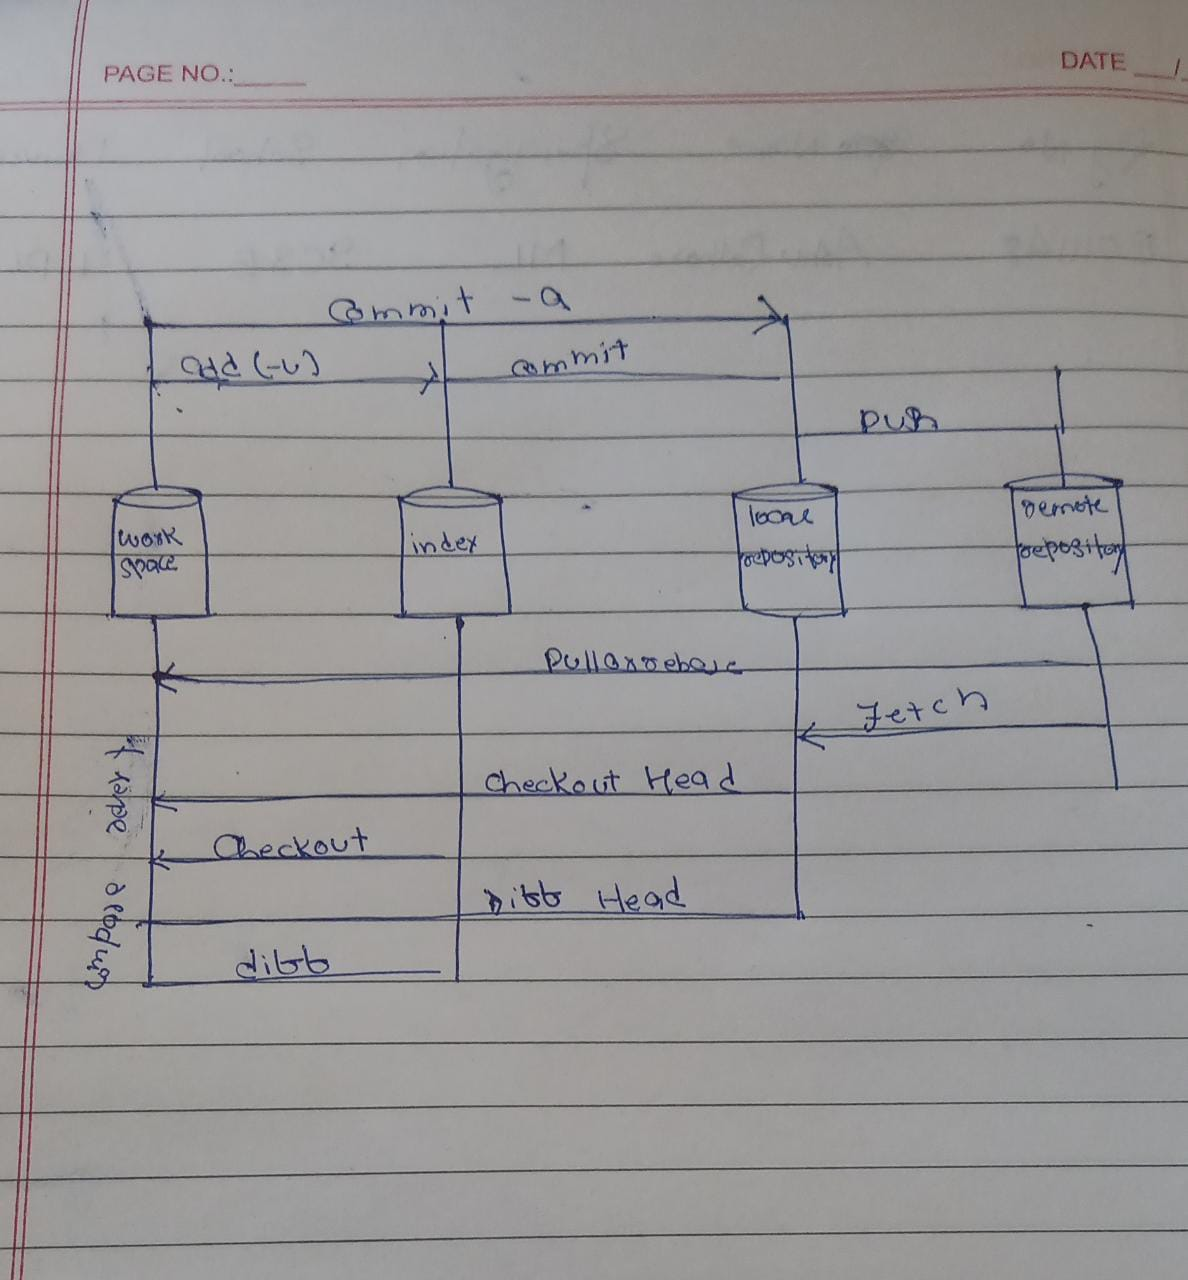 PAGE NO.:
DATE
Commit -a
add (-u)
commit
push
work
space
index
local
repository
remote
repository
Pull or rebase
Fetch
Checkout Head
Checkout
Diff Head
diff